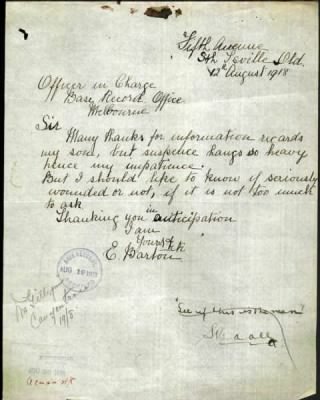 Fifth Avenue
Sth Seville Qld.
12th August 1918
Officer in Charge
Base Record Office
Melbourne
Sir
Many thanks for information regards
my son, but suspence hangs so heavy
hence my impatience.
But I should like to know if seriously
wounded or not, if it is not too much
to ask
Thanking you in anticipation
I am
Yours &
E. Barton
BASE RECORDS
AUG 1918